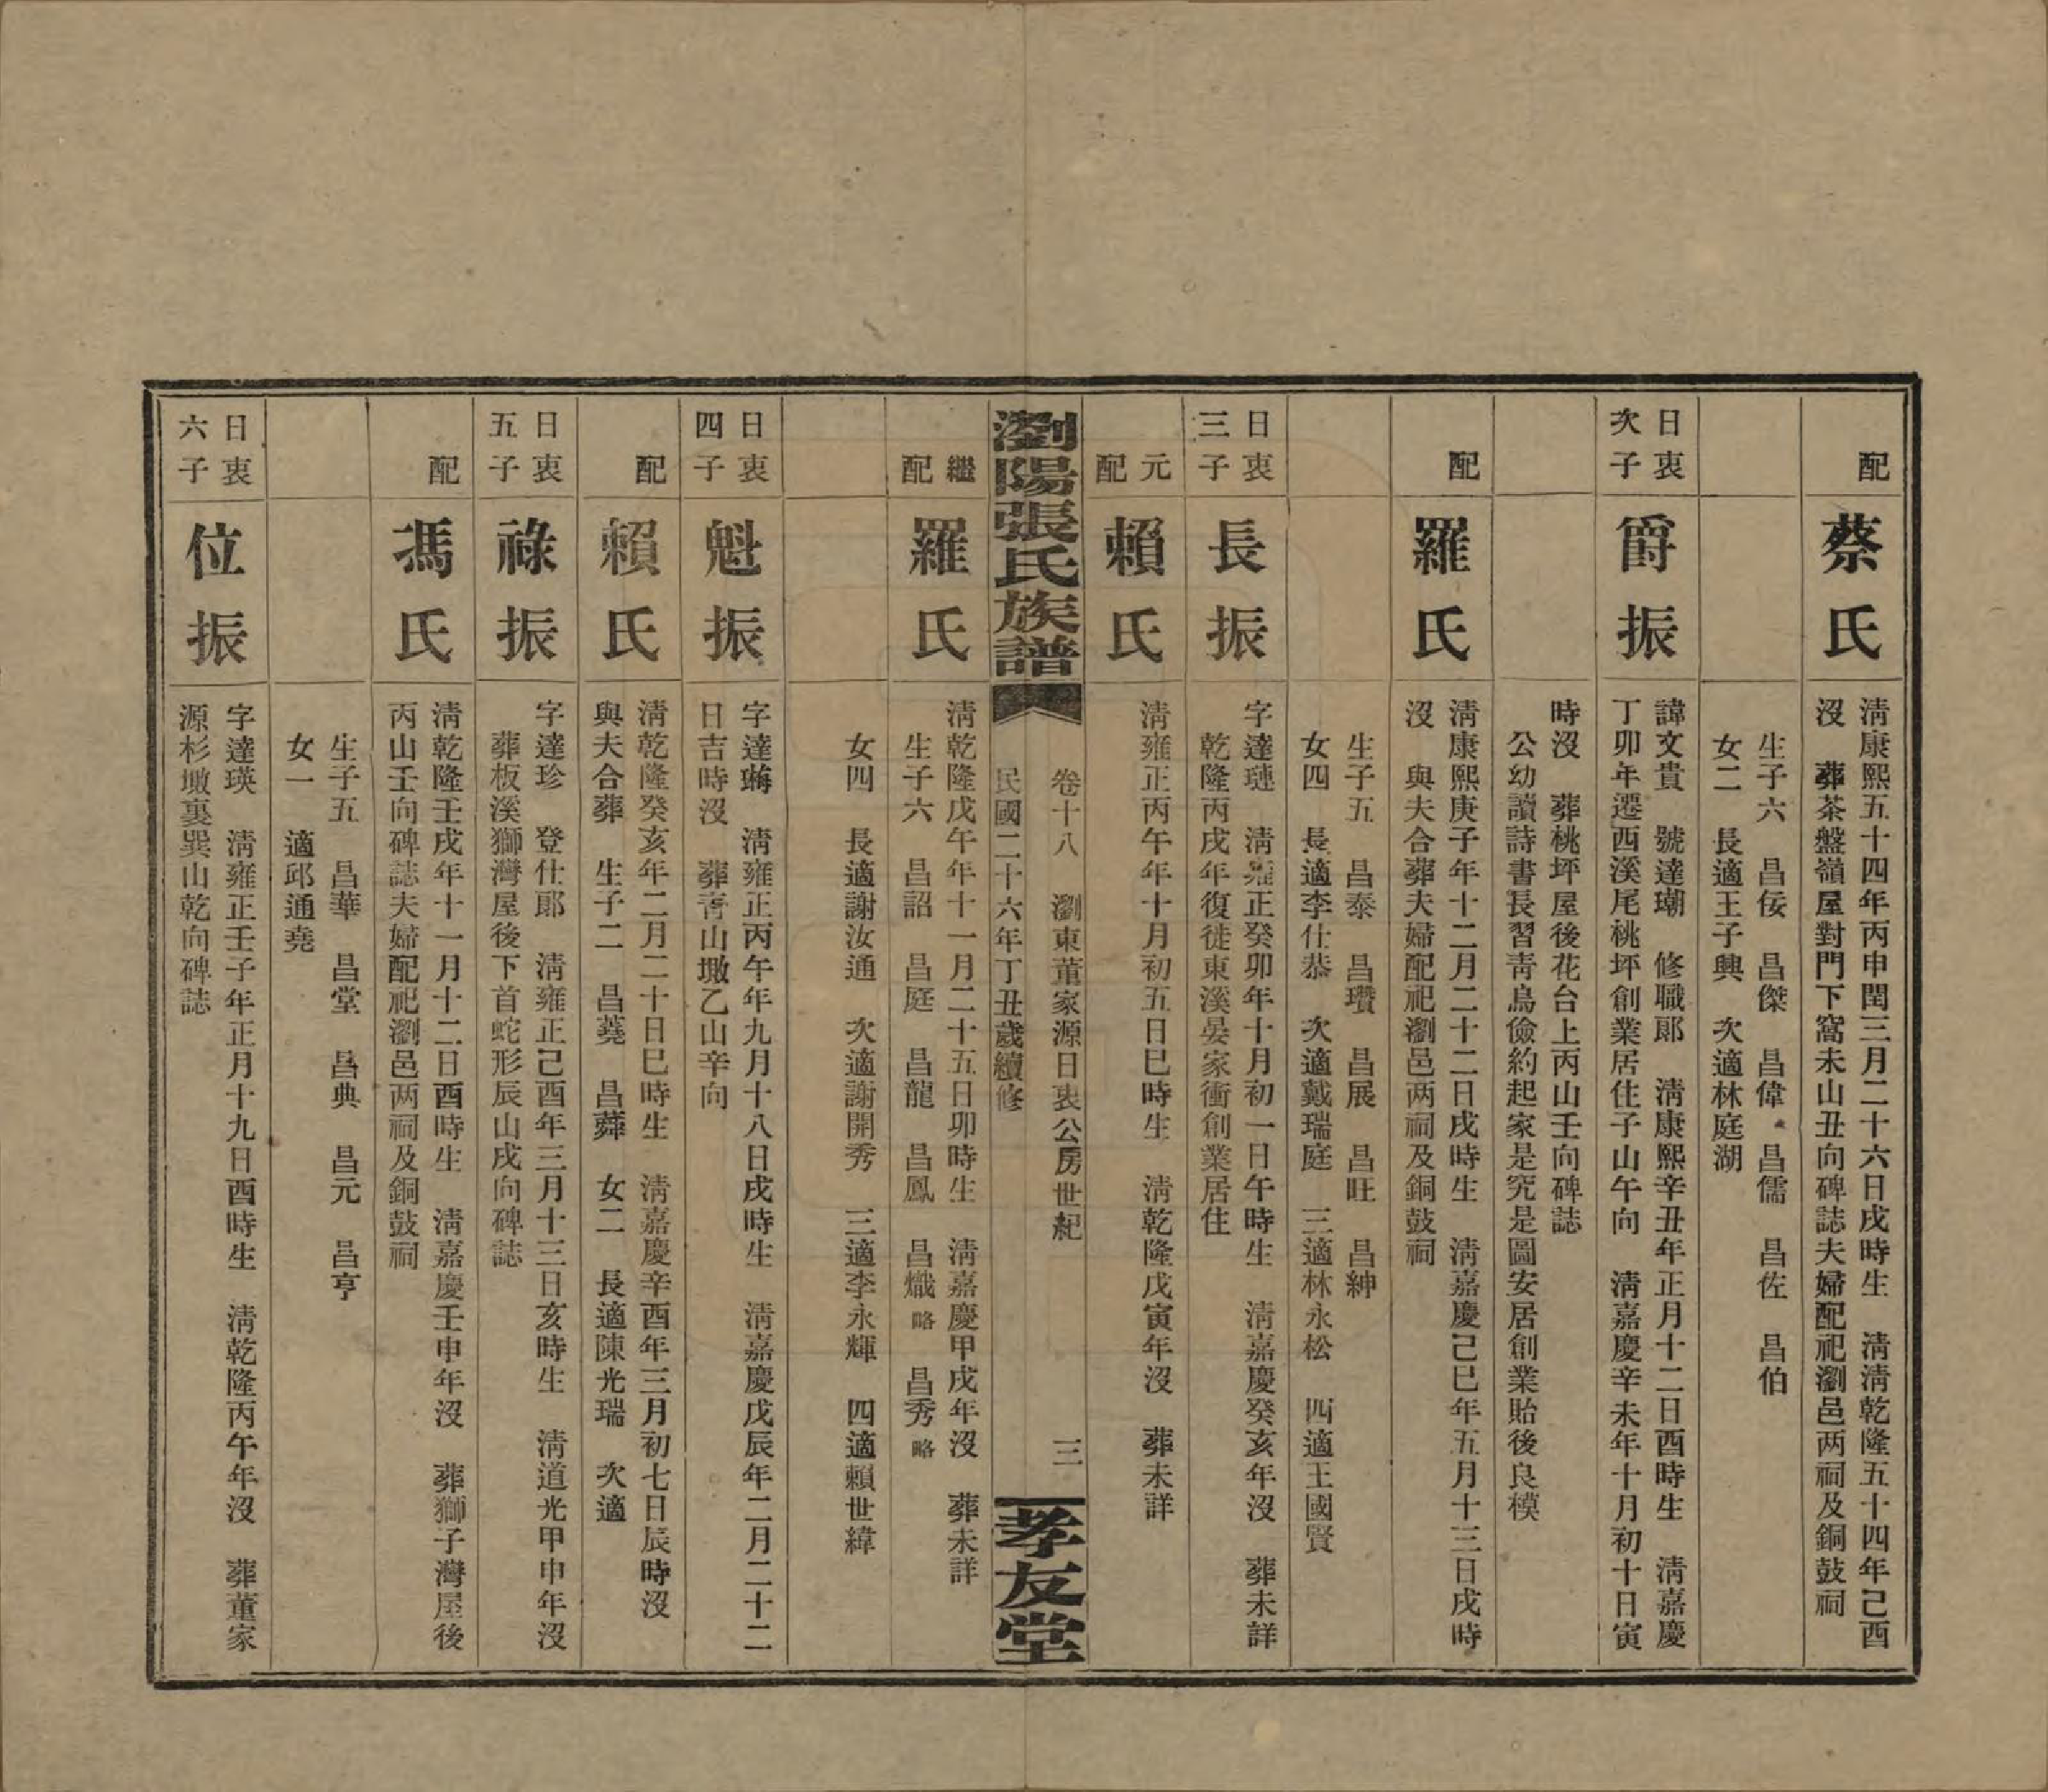 配
蔡氏
淸康熙五十四年丙申閏三月二十六日戌時生　淸淸乾隆五十四年己酉
沒　葬茶盤嶺屋對門下窩未山丑向碑誌夫婦配祀瀏邑两祠及銅鼓祠
生子六　昌佞　昌傑　昌偉　昌儒　昌佐　昌伯
女二　長適王子興　次適林庭湖
日衷
次子
爵振
諱文貴　號達瑚　修職郞　淸康熙辛丑年正月十二日酉時生　淸嘉慶
丁卯年遷西溪尾桃坪創業居住子山午向　淸嘉慶辛未年十月初十日寅
時沒　葬桃坪屋後花台上丙山壬向碑誌
公幼讀詩書長習靑烏儉約起家是究是圖安居創業貽後良模
配
羅氏
淸康熙庚子年十二月二十二日戌時生　淸嘉慶己巳年五月十三日戌時
沒　與夫合葬夫婦配祀瀏邑两祠及銅鼓祠
生子五　昌泰　昌瓚　昌展　昌旺　昌紳
女四　長適李仕恭　次適戴瑞庭　三適林永松　四適王國賢
日衷
三子
長振
字達璉　淸雍正癸卯年十月初一日午時生　淸嘉慶癸亥年沒　葬未詳
乾隆丙戌年復徙東溪晏家衝創業居住
元
配
賴氏
淸雍正丙午年十月初五日巳時生　淸乾隆戊寅年沒　葬未詳
瀏陽張氏族譜
卷十八　瀏東董家源日衷公房世紀　三
民國二十六年丁丑歲續修
孝友堂
繼
配
羅氏
淸乾隆戊午年十一月二十五日卯時生　淸嘉慶甲戌年沒　葬未詳
生子六　昌詔　昌庭　昌龍　昌鳳　昌熾略　昌秀略
女四　長適謝汝通　次適謝開秀　三適李永輝　四適賴世緯
日衷
四子
魁振
字達　淸雍正丙午年九月十八日戌時生　淸嘉慶戊辰年二月二十二
日吉時沒　葬靑山墩乙山辛向
配
賴氏
淸乾隆癸亥年二月二十日巳時生　淸嘉慶辛酉年三月初七日辰時沒
與夫合葬　生子二　昌蕘　昌蕣　女二　長適陳光瑞　次適
日衷
五子
祿振
字達珍　登仕郞　淸雍正己酉年三月十三日亥時生　淸道光甲申年沒
葬板溪獅灣屋後下首蛇形辰山戌向碑誌
配
馮氏
淸乾隆壬戌年十一月十二日酉時生　淸嘉慶壬申年沒　葬獅子灣屋後
丙山壬向碑誌夫婦配祀瀏邑两祠及銅鼓祠
生子五　昌華　昌堂　昌典　昌元　昌亨
女一　適邱通堯
日衷
六子
位振
字達瑛　淸雍正壬子年正月十九日酉時生　淸乾隆丙午年沒　葬董家
源杉墩裏巽山乾向碑誌